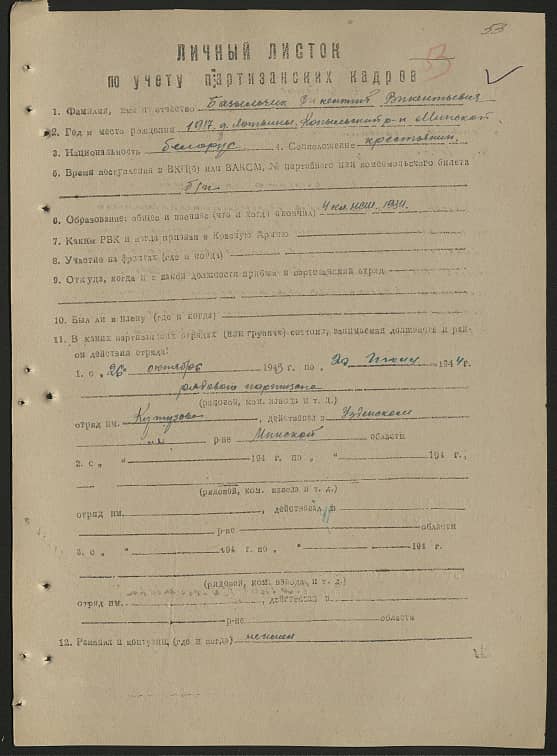 53
ЛИЧНЫЙ ЛИСТОК
по учету партизанских кадров
1. Фамилия, имя и отчество Викентий Викентьевич
2. Год и место рождения 1917 д. Копыльский р-н Минской
3. Национальность белорус 4. Соцположение крестьянин
5. Время вступления в ВКП(б) или ВЛКСМ, № партийного или комсомольского билета
б/п
6. Образование: общее и военное (что и когда окончил) 4 кл. 1931
7. Каким РВК и когда призван в Красную Армию
8. Участие на фронтах (где и когда)
9. Откуда, когда и с какой должности прибыл в партизанский отряд
10. Был ли в плену (где и когда)
11. В каких партизанских отрядах (или группах) состоял, занимаемая должность и рай-
он действия отряда:
1. с „26“ октября 1943 г. по „ 1944 г.
рядового партизана
(рядовой, ком. взвода и т. д.)
отряд им. Кутузова, действовал в Узденском
р-не Минской области
2. с „ “ 194 г. по „ “ 194 г.,
(рядовой, ком. взвода и т. д.)
отряд им. , действовал в
р-не области
3. с „ “ 194 г. по „ “ 194 г.
(рядовой, ком. взвода и т. д.)
отряд им. , действовал в
р-не области
12. Ранения и контузии (где и когда)